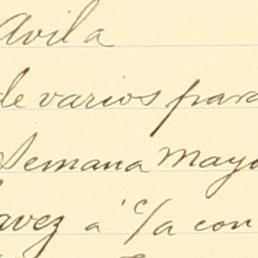 Avila
de varios para
Semana Mayo
avez a c/a con